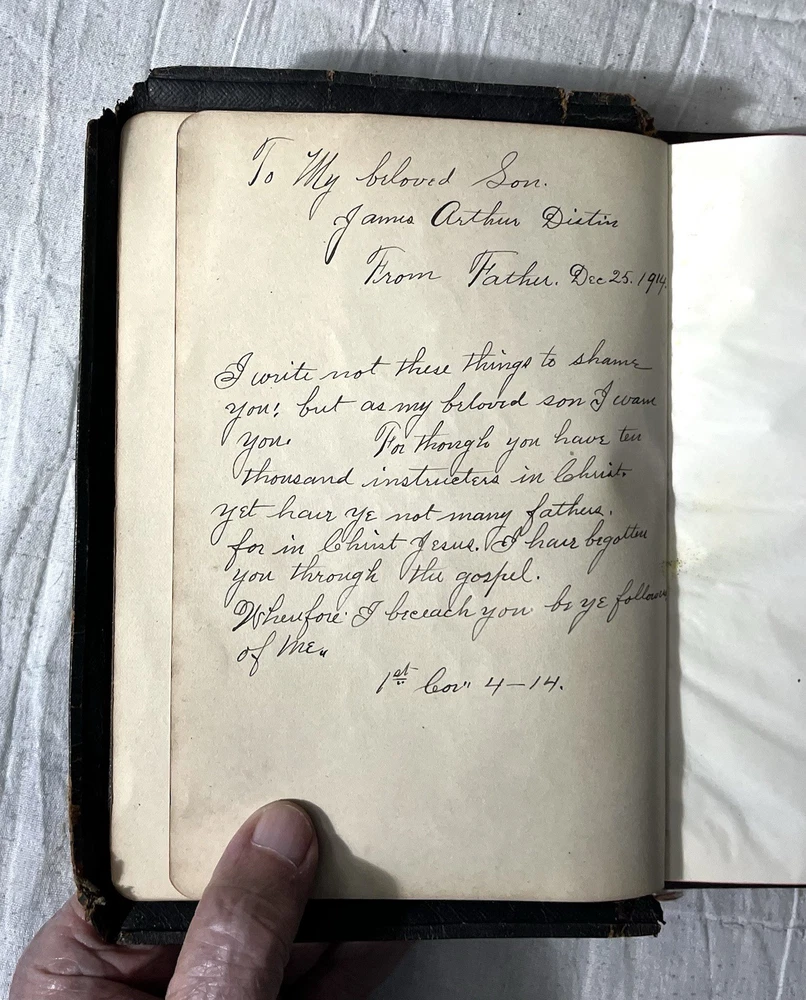 To My beloved Son.
James Arthur Distin
From Father. Dec 25. 1914.
I write not these things to shame
you; but as my beloved son I warn
you. For though you have ten
thousand instructers in Christ.
yet have ye not many fathers.
for in Christ Jesus. I have begotten
you through the gospel.
Wherefore I beceach you be ye followers
of Me,,
1st Cor" 4-14.